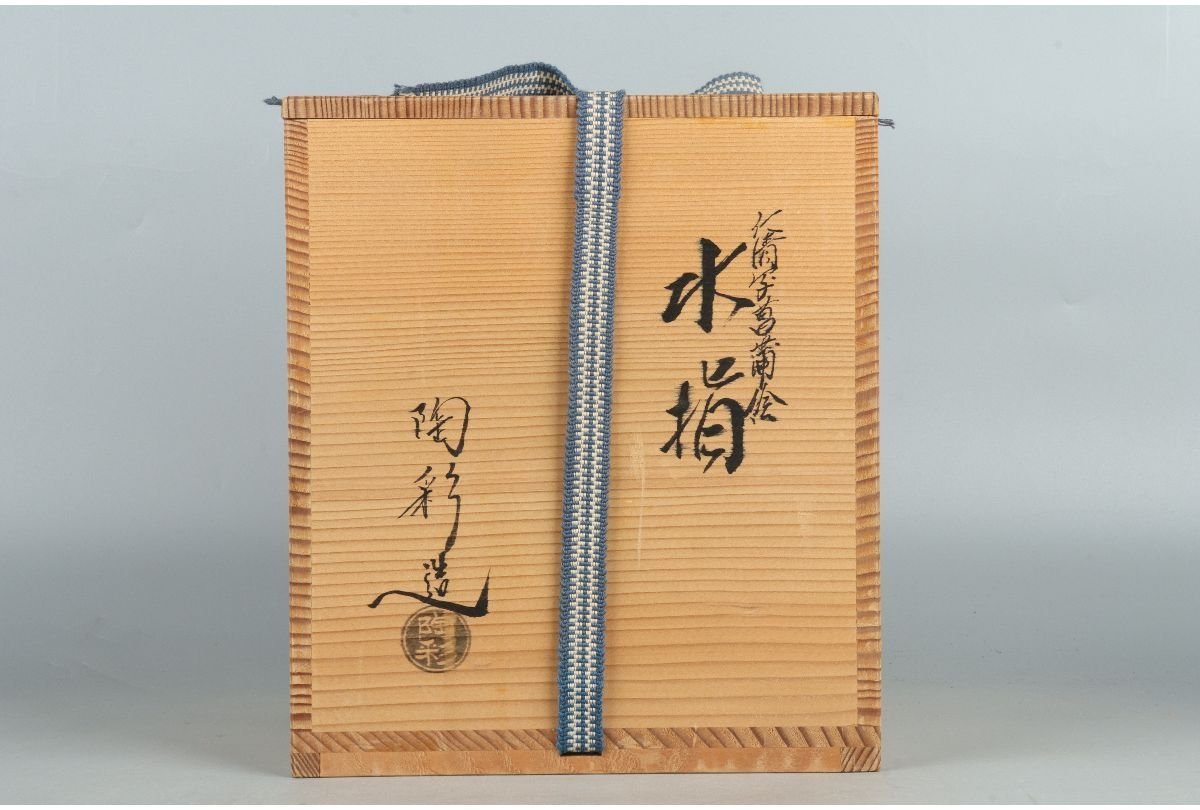 仁清写菖蒲絵
水指
陶彩造
陶彩